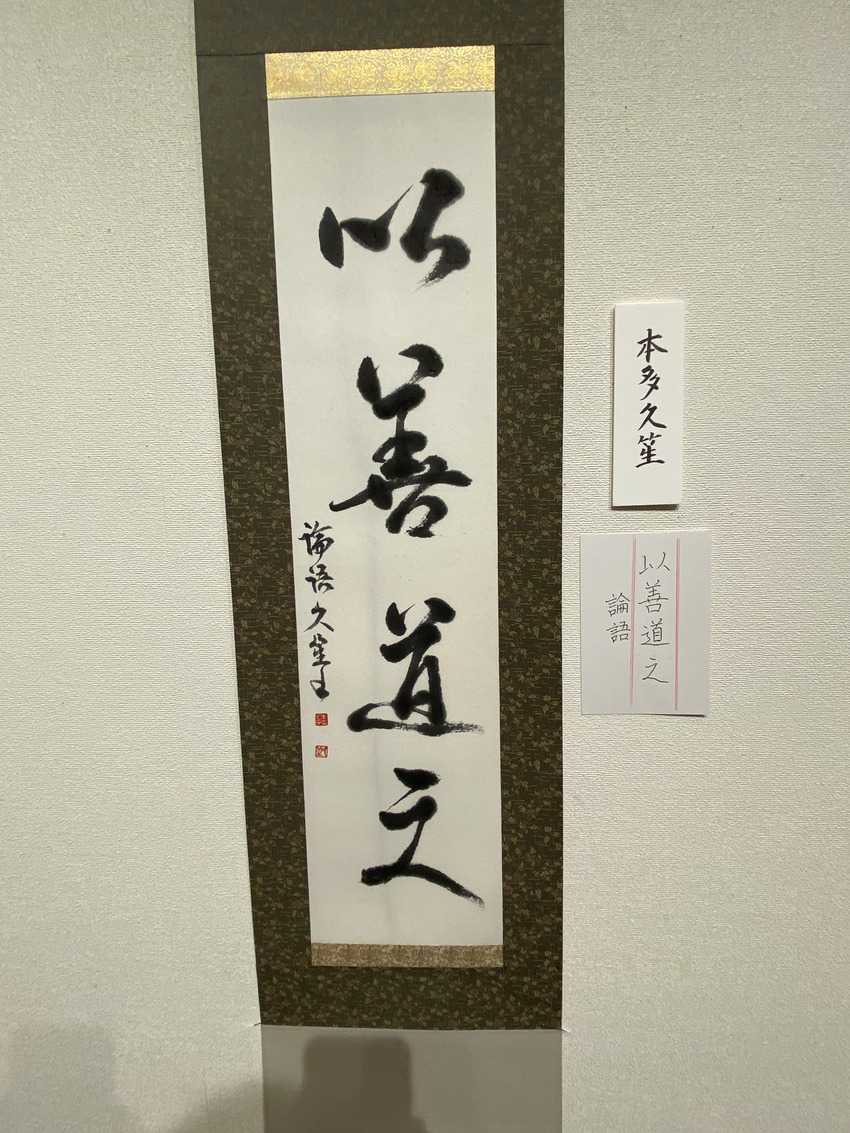 以善道之
論語久笙
本多久笙
以善道之
論語